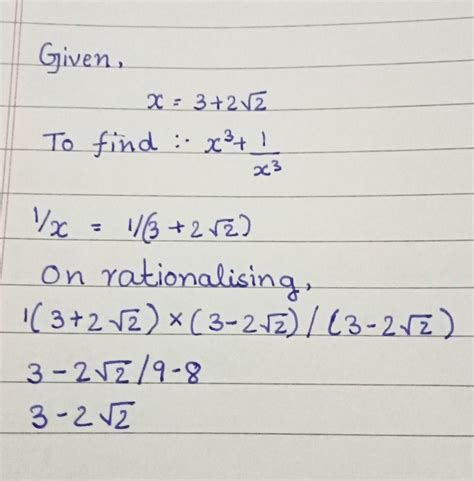 Given,
x = 3+2√2
To find :- x³+ 1/x³
1/x = 1/(3 + 2√2)
On rationalising,
1(3+2√2)×(3-2√2)/(3-2√2)
3-2√2/9-8
3-2√2